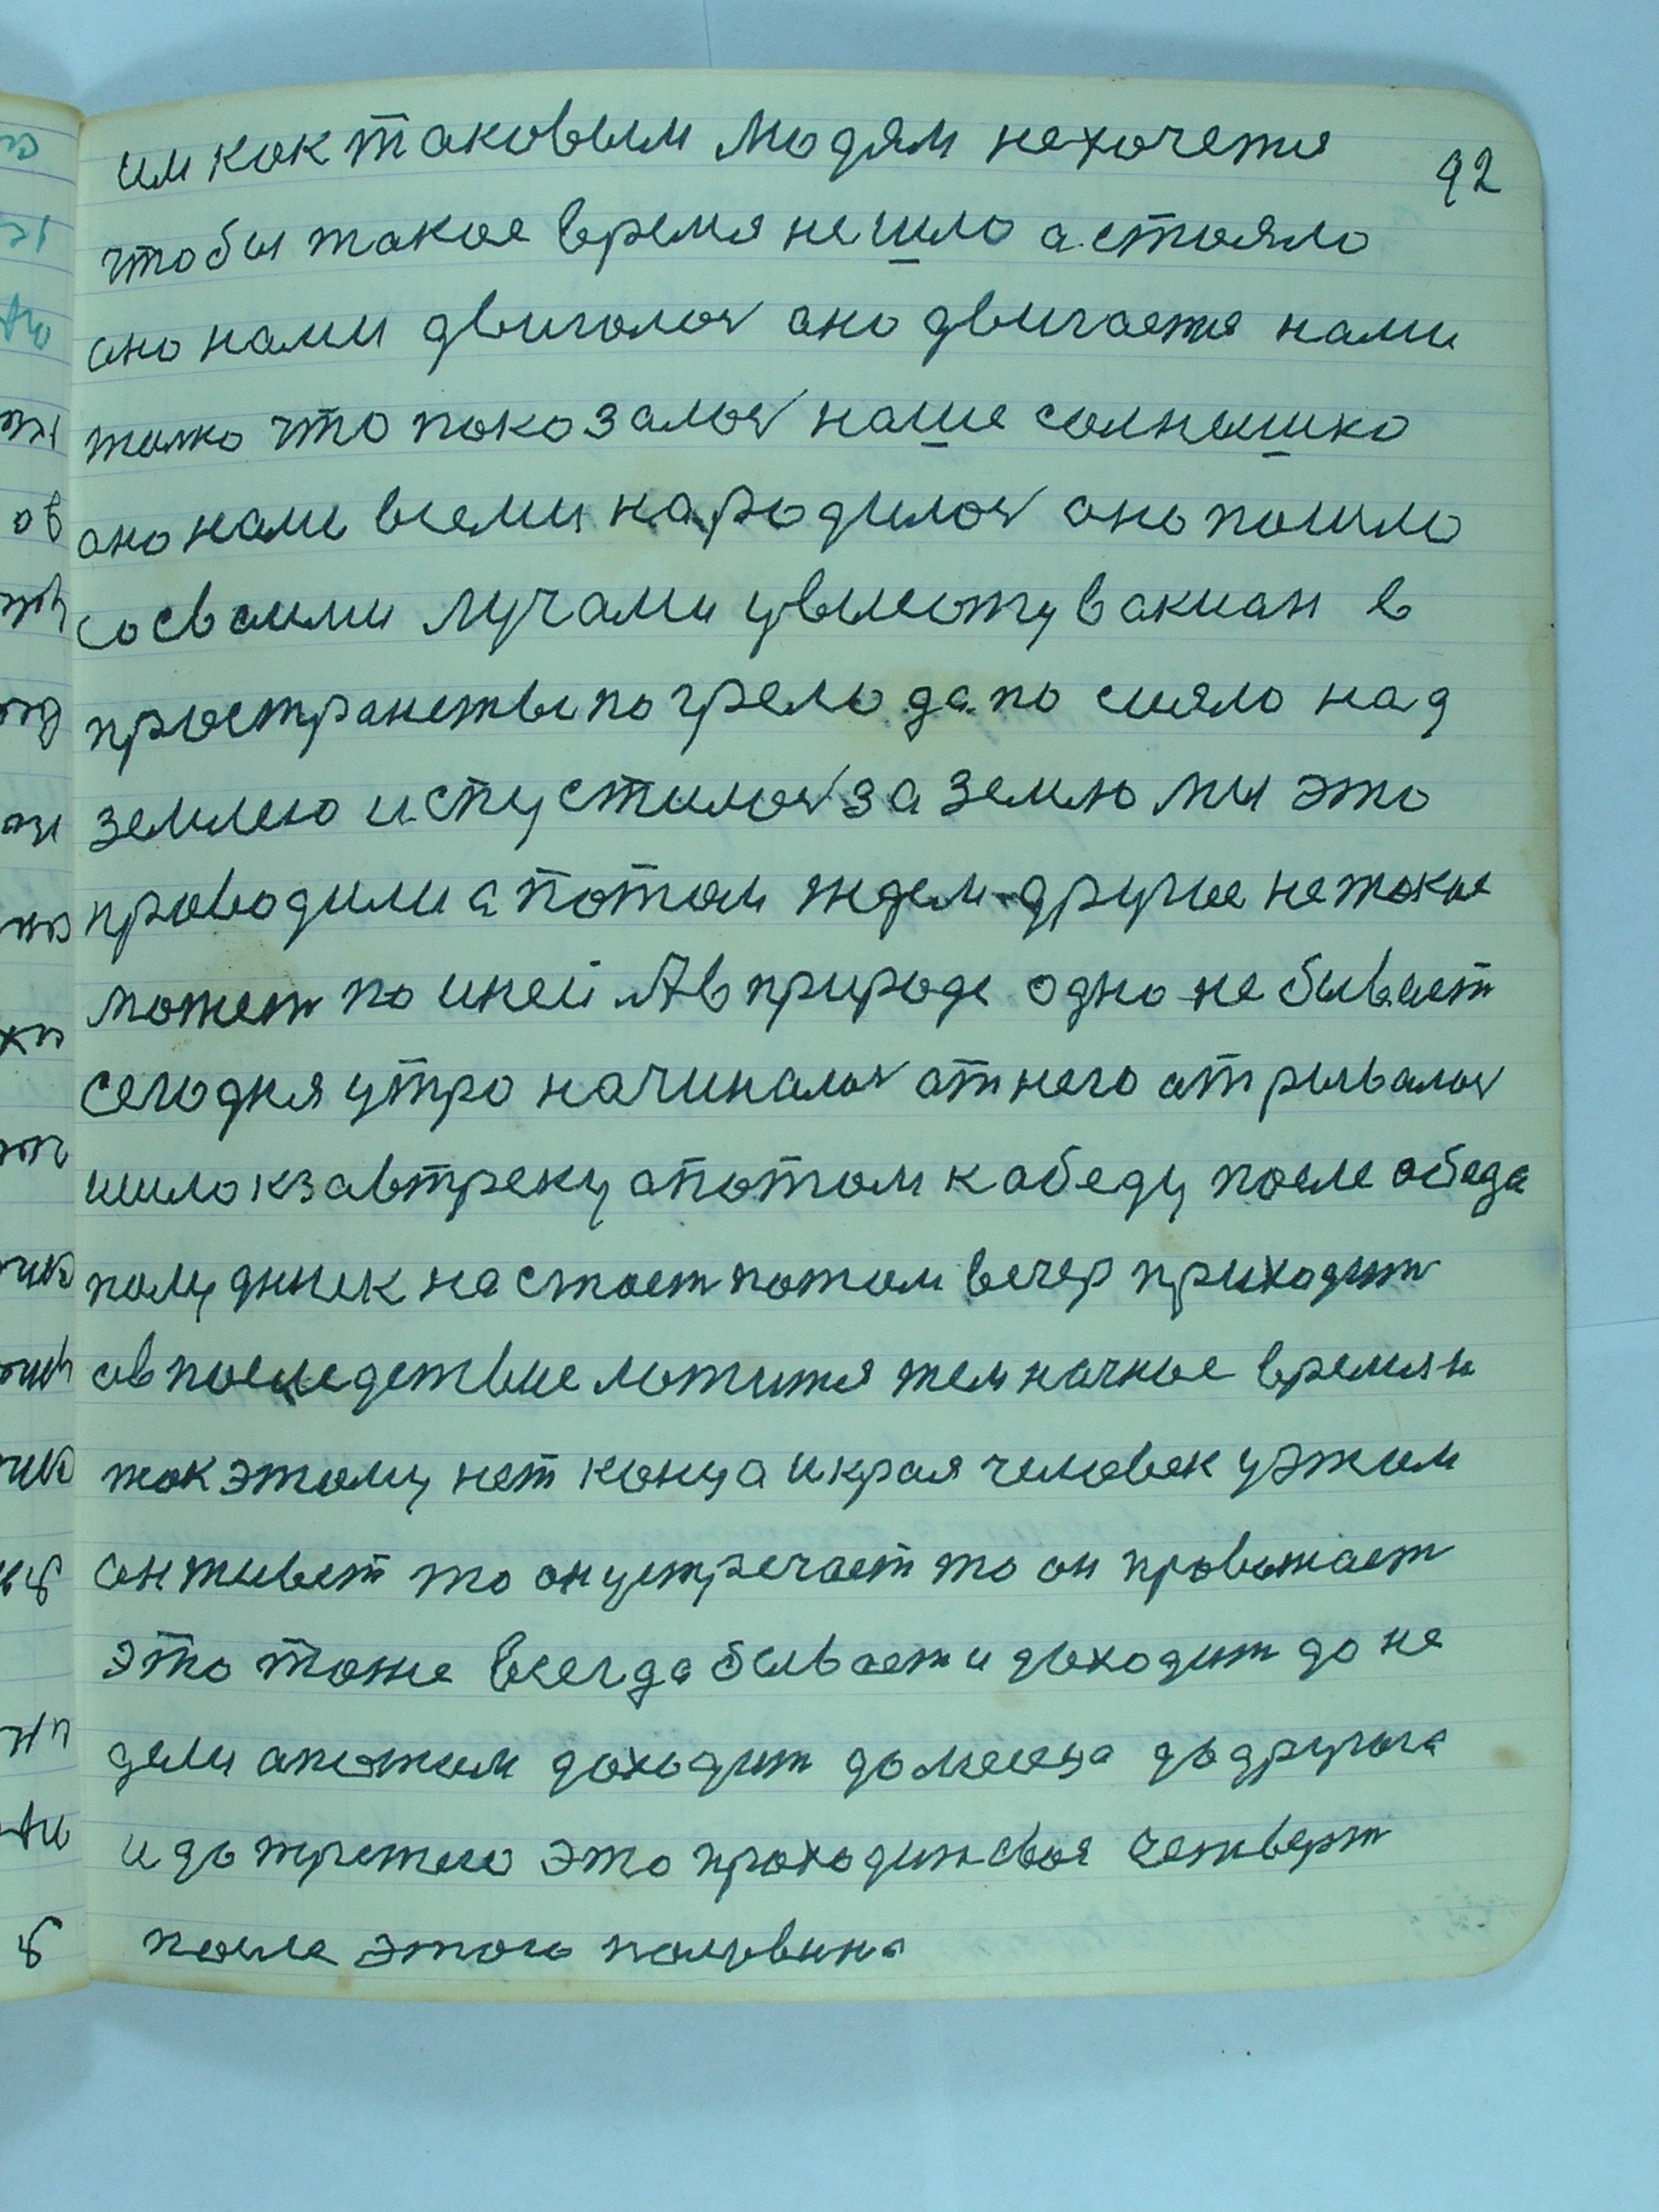 92
им как таковым людям нехочется
чтобы такое время нешло а стояло
оно нами двигалось ано двигается нами
толко что показалось наше солнышко
ано нами всеми народилось оно пошло
со своими лучами увысоту в акиан в
пространстве погрело да по сияло над
землею и спустилось за землю мы это
проводили а потом ждем другое нетакое
может по иней А в природе одно не бывает
сегодня утро начиналось от него отрывалось
шило к завтреку апотом к абеду после обеда
полудник настает потом вечер приходит
авпоследствие лотится темначное время и
так этому нет конца и края человек уэтим
он живет то он устречает то он провожает
это тоже всегда бывает и доходит до не
дели апотом доходит до месеца до другога
и до третего это проходит своя четверт
после этого половина